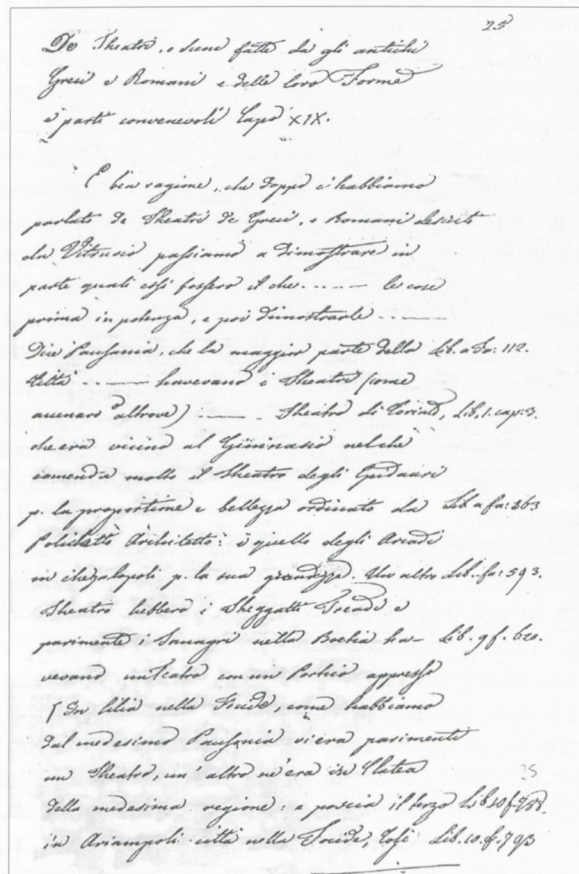 25
De Theatri, e scene fatte da gli antichi
Greci e Romani e delle loro Forme
e parti convenevoli Capo XIX.
E ben ragione, che doppo c'habbiamo
parlato de Theatri de Greci, e Romani descritti
da Vitruvio passiamo a dimostrare in
parte quali essi fossero il che ........ le cose
prima in potenza, e poi dimostrarle ........
Dice Pausania, che la maggior parte delle Lib. a fa: 112.
Città ........ havevano i Theatri (come
accenaro altrove) ........ Theatro di Corinto, Lib. 1. cap: 3.
che era vicino al Ginnasio nel che
comenda molto il Theatro degli
p. la proportione e bellezza ordinato da Lib. a fa: 363
Policletto Architetto: e quello degli Arcadi
in p. la sua grandezza. Un altro Lib. fa: 593.
Theatro hebbero i e
parimente i Tanagri nella ha- Lib. 9 f. 620.
vevano un teatro con un Portico appresso
In nella Focide, come habbiamo
dal medesimo Pausania vi era parimenti
un Theatro, un' altro ne era in Platea 25
della medesima regione: e poscia il terzo Lib. 10 f.
in città nella Focide, Lib. 10. f. 793